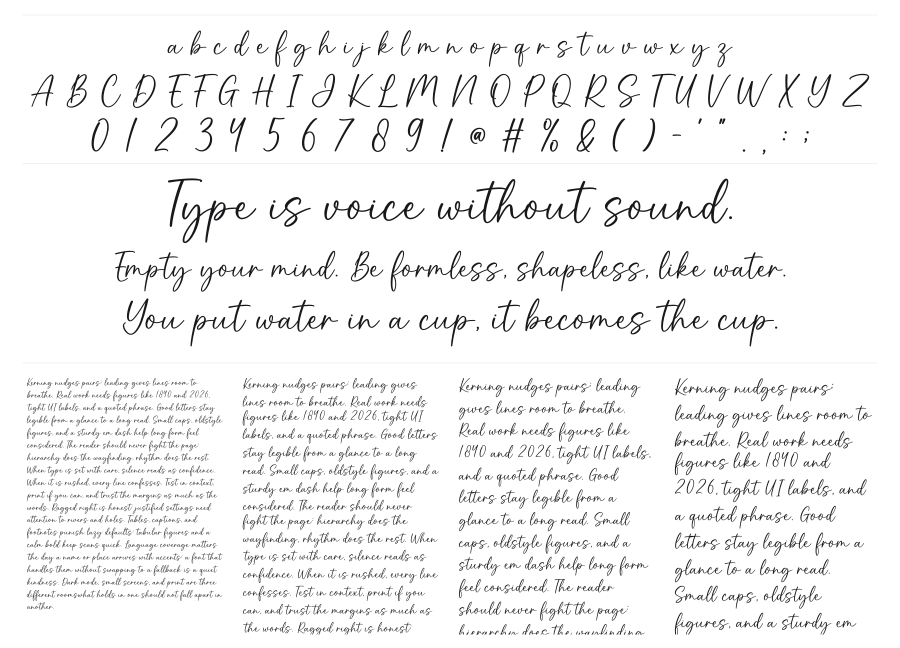 a b c d e f g h i j k l m n o p q r s t u v w x y z
A B C D E F G H I J K L M N O P Q R S T U V W X Y Z
0 1 2 3 4 5 6 7 8 9 ! @ # % & ( ) - ' " . , : ;
Type is voice without sound.
Empty your mind. Be formless, shapeless, like water.
You put water in a cup, it becomes the cup.
Kerning nudges pairs; leading gives lines room to
breathe. Real work needs figures like 1890 and 2026,
tight UI labels, and a quoted phrase. Good letters stay
legible from a glance to a long read. Small caps, oldstyle
figures, and a sturdy em dash help long form feel
considered. The reader should never fight the page;
hierarchy does the wayfinding, rhythm does the rest.
When type is set with care, silence reads as confidence.
When it is rushed, every line confesses. Test in context,
print if you can, and trust the margins as much as the
words. Ragged right is honest; justified settings need
attention to rivers and holes. Tables, captions, and
footnotes punish lazy defaults; tabular figures and a
calm bold keep scans quick. Language coverage matters
the day a name or place arrives with accents; a font that
handles them without swapping to a fallback is a quiet
kindness. Dark mode, small screens, and print are three
different rooms; what holds in one should not fall apart in
another.
Kerning nudges pairs; leading gives
lines room to breathe. Real work needs
figures like 1890 and 2026, tight UI
labels, and a quoted phrase. Good letters
stay legible from a glance to a long
read. Small caps, oldstyle figures, and a
sturdy em dash help long form feel
considered. The reader should never
fight the page; hierarchy does the
wayfinding, rhythm does the rest. When
type is set with care, silence reads as
confidence. When it is rushed, every line
confesses. Test in context, print if you
can, and trust the margins as much as
the words. Ragged right is honest;
Kerning nudges pairs; leading
gives lines room to breathe.
Real work needs figures like
1890 and 2026, tight UI labels,
and a quoted phrase. Good
letters stay legible from a
glance to a long read. Small
caps, oldstyle figures, and a
sturdy em dash help long form
feel considered. The reader
should never fight the page;
hierarchy does the wayfinding,
Kerning nudges pairs;
leading gives lines room to
breathe. Real work needs
figures like 1890 and
2026, tight UI labels, and
a quoted phrase. Good
letters stay legible from a
glance to a long read.
Small caps, oldstyle
figures, and a sturdy em